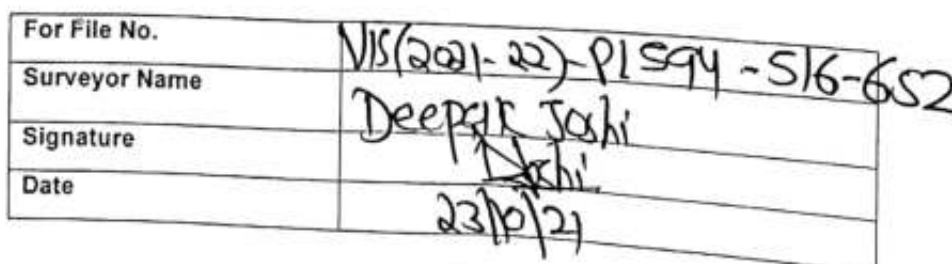 For File No. VIS(2021-22)-PL594-516-652
Surveyor Name Deepak Joshi
Signature DJoshi
Date 23/10/21